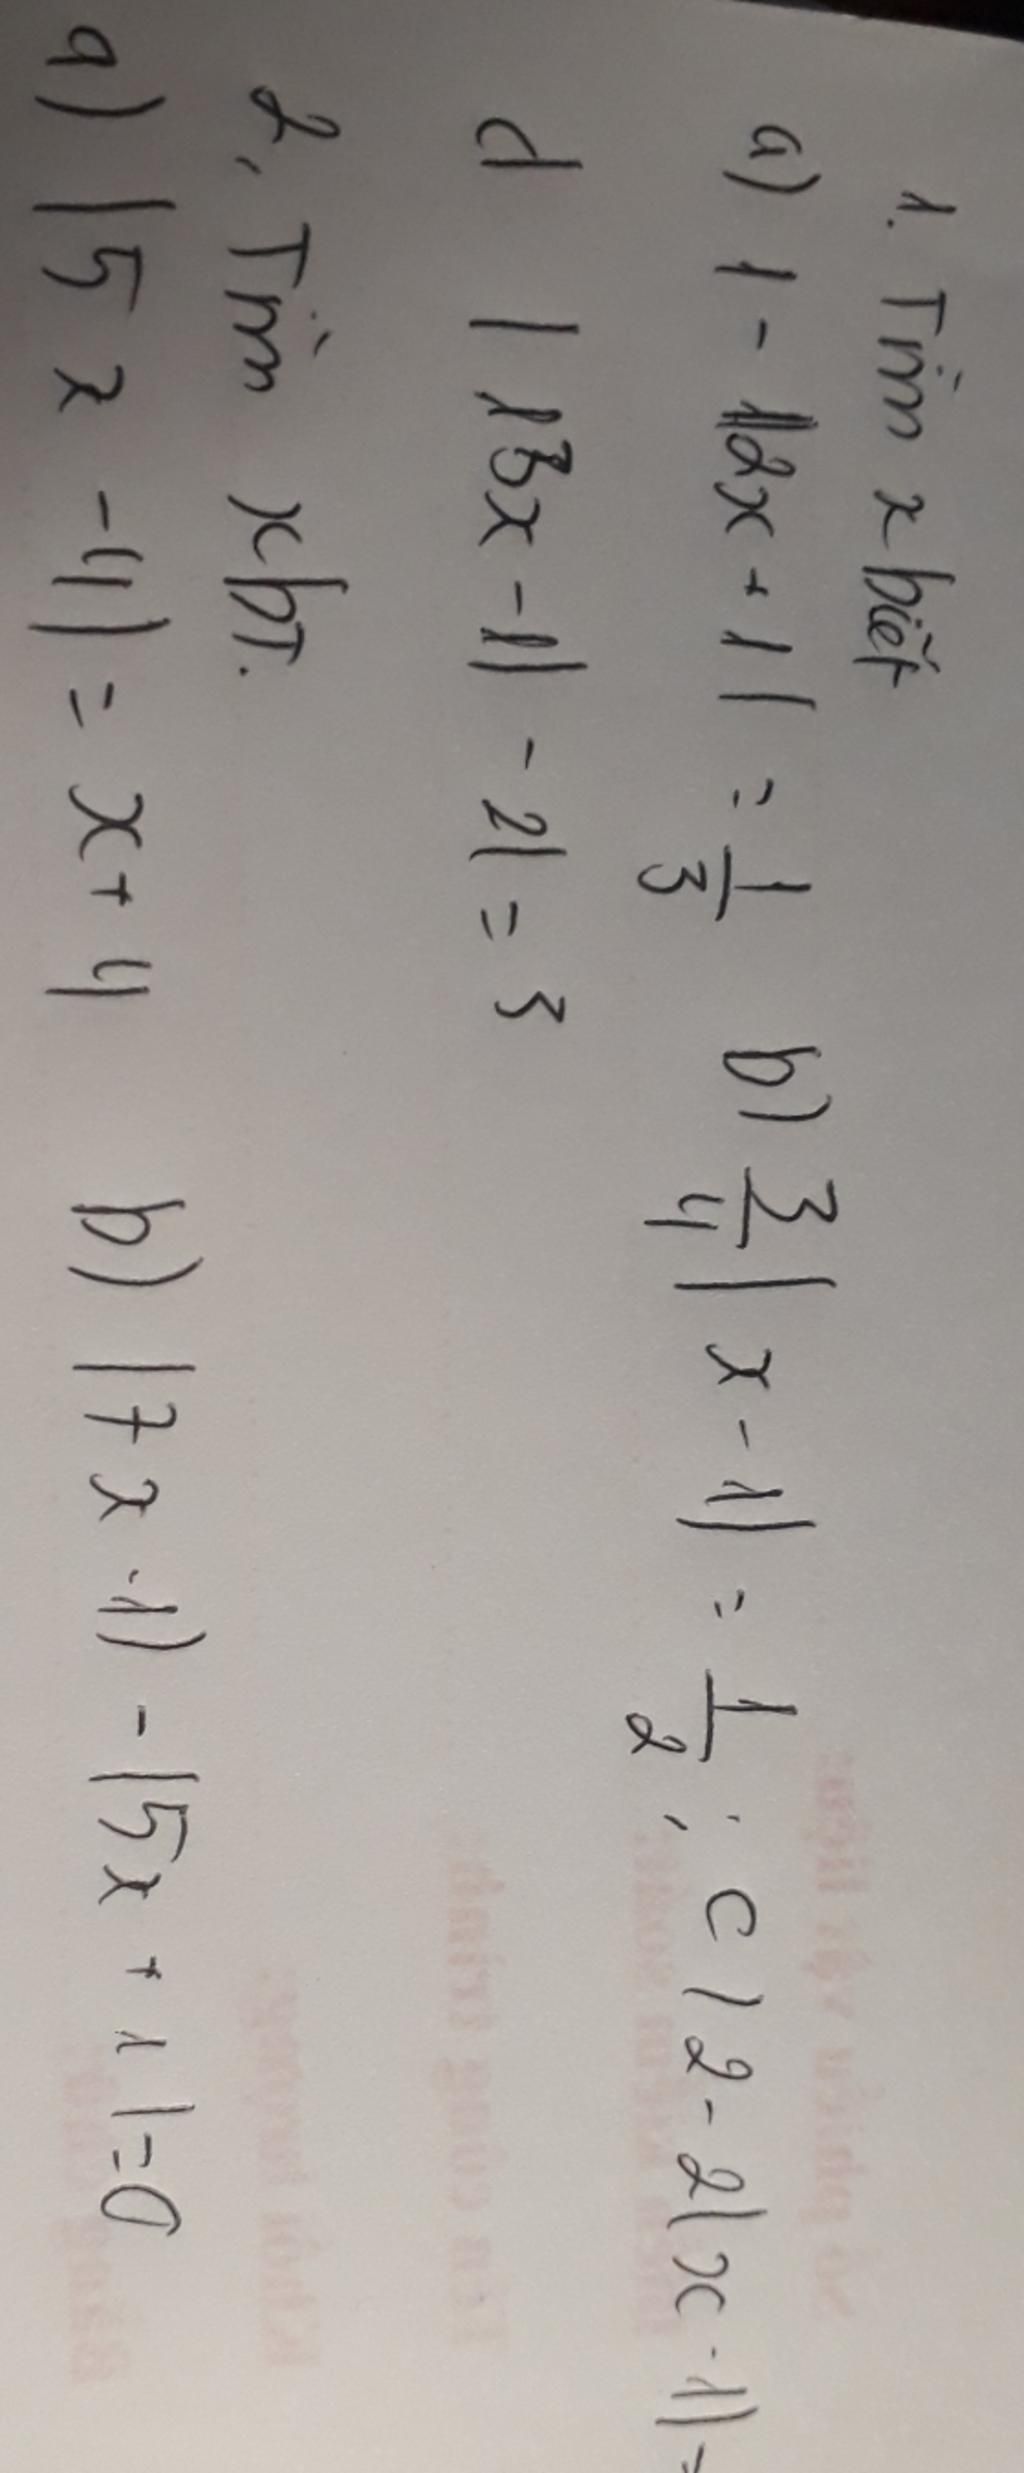 1. Tìm x biết
a) 1 - |2x + 1| = 1/3 b) 3/4 |x - 1| = 1/2 ; c) 2 - 2|x - 1| =
d | |3x - 1| - 2| = 3
2, Tìm x bT.
a) |5x - 4| = x + 4 b) |7x - 1| - |5x + 1| = 0